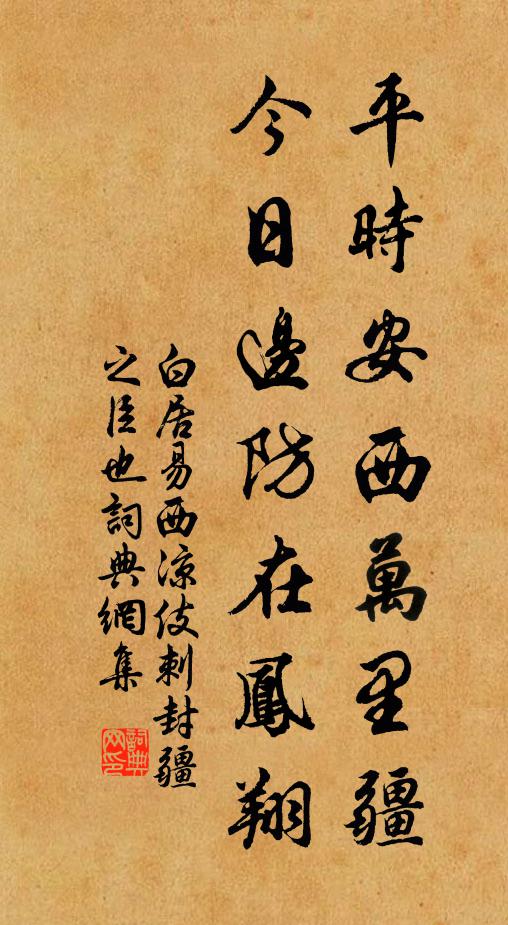 平時安西萬里疆
今日邊防在鳳翔
白居易西凉伎刺封疆
之臣也詞典網集
詞典網印